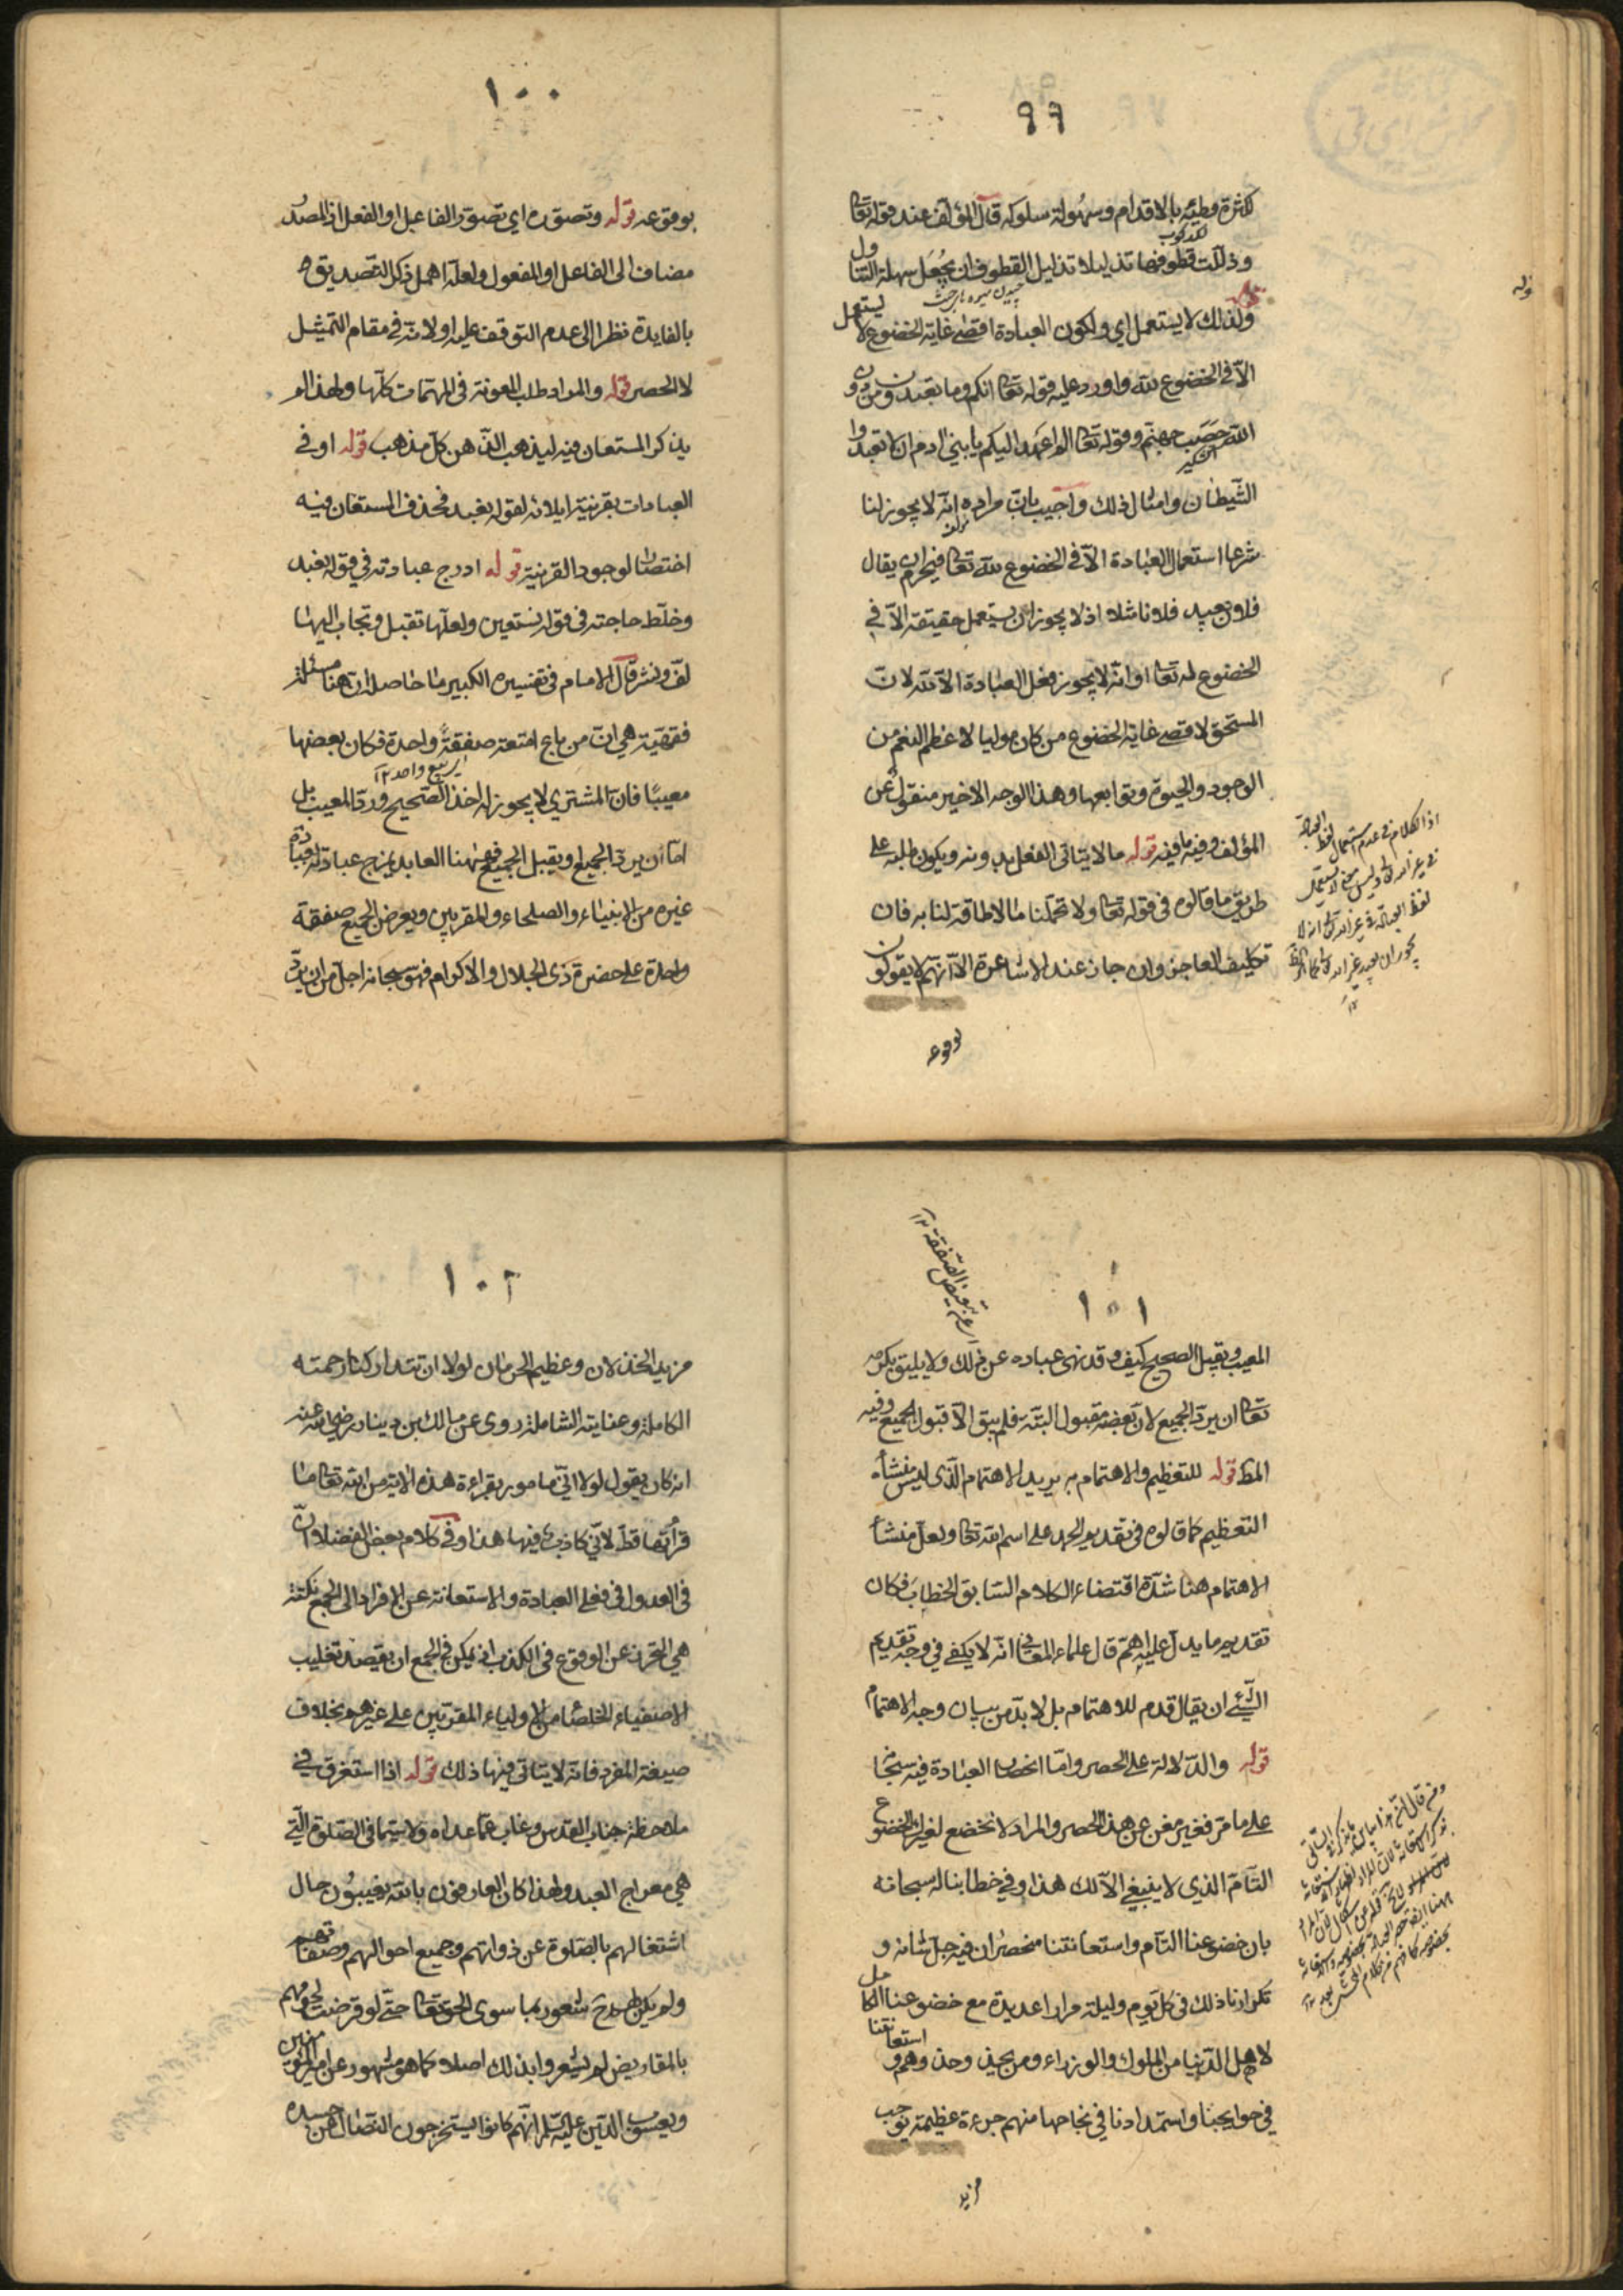 ٩٩
لكثرة وطئه بالاقدام وسهولة سلوكه قال المؤلف عند قوله تعا
وذللت قطوفها تذليلا تذليل القطوف ان يجعل سهلة التناول
ولذلك لا يستعمل اي ولكون العبادة اقصى غاية الخضوع لا يستعمل
الا في الخضوع لله واورد عليه قوله تعا انكم وما تعبدون من دون
الله حصب جهنم وقوله تعا الم اعهد اليكم يا بني ادم ان لا تعبدوا
الشيطان وامثال ذلك واجيب بان مراده انه لا يجوز لنا
شرعا استعمال العبادة الا في الخضوع لله تعا فيحرم ان يقال
فلان يعبد فلانا مثلا اذ لا يجوز ان يستعمل حقيقة الا في
الخضوع له تعا او انه لا يجوز فعل العبادة الا لله لان
المستحق لاقصى غاية الخضوع من كان موليا لاعظم النعم من
الوجود والحيوة وتوابعها وهذا الوجه الاخير منقول عن
المؤلف وفيه ما فيه قوله ما لا يتاتى الفعل بدونه ويكون طلبه على
طريق ما قالوه في قوله تعا ولا تحملنا ما لا طاقة لنا به فان
تكليف العاجز وان جاز عند الاشاعرة الا انهم لا يقولون
بوقوعه
١٠٠
بوقوعه قوله وتصوره اي تصور الفاعل او الفعل اذ المصدر
مضاف الى الفاعل او المفعول ولعله اهمل ذكر التصديق
بالفايدة نظرا الى عدم التوقف عليه او لانه في مقام التمثيل
لا الحصر قوله والمراد طلب المعونة في المهمات كلها ولهذا لم
يذكر المستعان فيه ليذهب الذهن كل مذهب قوله او في
العبادات بقرينة ايلائه لقوله نعبد فحذف المستعان فيه
اختصارا لوجود القرينة قوله ادرج عبادته في قوله نعبد
وخلط حاجته في قوله نستعين ولعلها تقبل وتجاب اليها
لف ونشر قال الامام في تفسيره الكبير ما حاصله ان هنا مسئلة
فقهية هي ان من باع امتعة صفقة واحدة فكان بعضها
معيبا فان المشتري لا يجوز له اخذ الصحيح ورد المعيب بل
اما ان يرد الجميع او يقبل الجميع فههنا العابد يمزج عبادته بعبادة
غيره من الانبياء والصلحاء والمقربين ويعرض الجميع صفقة
واحدة على حضرة ذي الجلال والاكرام فهو سبحانه اجل من ان يرد
١٠١
المعيب ويقبل الصحيح كيف وقد نهى عباده عن ذلك ولا يليق بكرمه
تعا ان يرد الجميع لان بعضه مقبول البتة فلم يبق الا قبول الجميع وفيه
المط قوله للتعظيم والاهتمام به يريد الاهتمام الذي ليس منشأه
التعظيم كما قالوه في تقديم الحمد على اسم الله تعا ولعل منشأ
الاهتمام هنا شدة اقتضاء الكلام السابق الخطاب فكان
تقديم ما يدل عليه اهم قال علماء المعاني انه لا يكفي في وجه تقديم
الشئ ان يقال قدم للاهتمام بل لا بد من بيان وجه الاهتمام
قوله والدلالة على الحصر واما انحصار العبادة فيه سبحا
على ما مر فغير مغن عن هذا الحصر والمراد لا نخضع لغيرك الخضوع
التام الذي لا ينبغي الا لك هذا وفي خطابنا له سبحانه
بان خضوعنا التام واستعانتنا منحصران فيه جل شانه و
تكرارنا ذلك في كل يوم وليلة مرارا عديدة مع خضوعنا الكامل
لاهل الدنيا من الملوك والوزراء ومن يحذو حذوهم واستعانتنا
في حوايجنا واستمدادنا في نجاحها منهم جرءة عظيمة توجب
مزيد
١٠٢
مزيد الخذلان وعظيم الحرمان لولا ان تتداركنا رحمته
الكاملة وعنايته الشاملة روى عن مالك بن دينار رضي الله عنه
انه كان يقول لولا اني مامور بقراءة هذه الاية من الله تعا ما
قرأتها قط لاني كاذب فيها هذا وفي كلام بعض الفضلاء ان
في العدول في فعلي العبادة والاستعانة عن الافراد الى الجمع نكتة
هي التحرز عن الوقوع في الكذب اذ يمكن في الجمع ان يقصد تغليب
الاصفياء الخلصا من الاولياء المقربين على غيرهم بخلاف
صيغة المفرد فانه لا يتاتى فيها ذلك قوله اذا استغرق في
ملاحظة جناب القدس وغاب عما عداه ولا سيما في الصلوة التي
هي معراج العبد ولهذا كان العارفون بالله يغيبون حال
اشتغالهم بالصلوة عن ذواتهم وجميع احوالهم وصفاتهم
ولم يكن لهم شعور بما سوى الحق تعا حتى لو قرضت لحومهم
بالمقاريض لم يشعروا بذلك اصلا كما هو مشهور عن امير المؤمنين
ويعسوب الدين عليه السلام انهم كانوا يستخرجون النصال من جسده